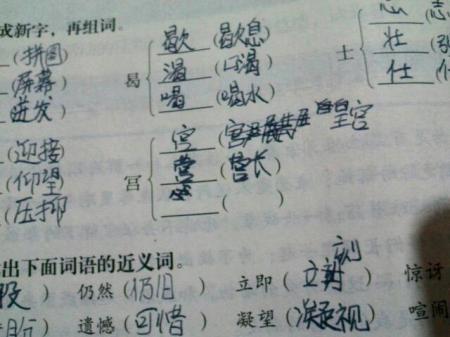 成新字，再组词。
(拼图) 歇 (歇息) 志
(屏幕) 曷 渴 (口渴) 士 壮
(迸发) 喝 (喝水) 仕
(迎接) 宫 (宫 皇宫
(仰望) 宫 营 (营长)
(压抑) ( )
出下面词语的近义词。
段) 仍然 (仍旧) 立即 (立刻 惊讶
遗憾 (可惜) 凝望 (凝视) 喧闹